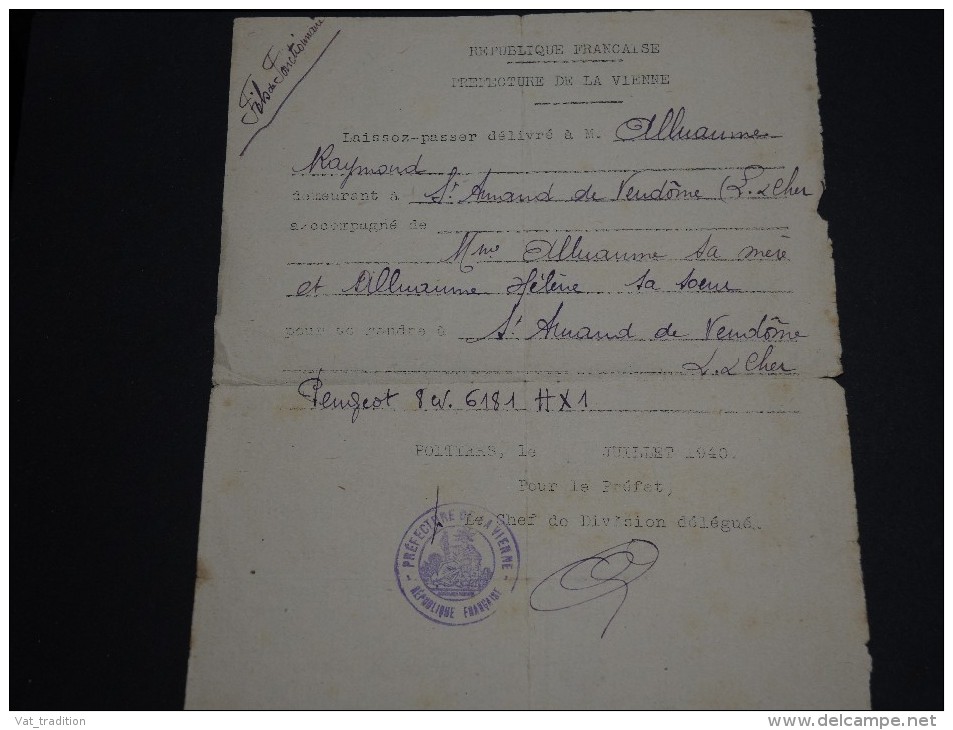 Fils de Fonctionnaire
REPUBLIQUE FRANCAISE
PREFECTURE DE LA VIENNE
Laissez-passer délivré à M. Alluaume
Raymond
demeurant à St Amand de Vendôme (L. & Cher)
accompagné de
Mme Alluaume sa mère
et Alluaume Hélène sa soeur
pour se rendre à St Amand de Vendôme
L. & Cher
Peugeot 8 cv. 6181 HX1
POITIERS, le JUILLET 1940.
Pour le Préfet,
Le Chef de Division délégué.
PRÉFECTURE DE LA VIENNE
RÉPUBLIQUE FRANÇAISE
Vat_tradition
www.delcampe.net